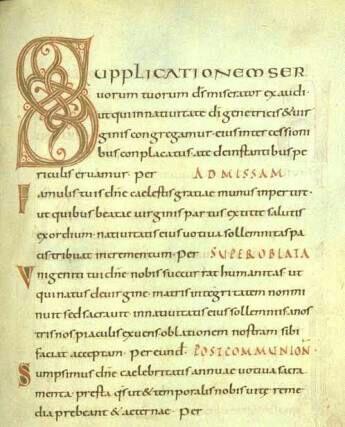 SUPPLICATIONEM SER
uorum tuorum ds miserator exaudi.
ut qui innatiuitate di genetricis & uir
ginis congregamur. eius intercessioni
bus conplacatus. ate deinstantibus pe
riculis eruamur. per ADMISSAM
Famulis tuis dne caelestis gratiae munus inpertire.
ut quibus beatae uirginis partus extitit salutis
exordium. natiuitatis eius uotiua sollemnitas pa
cis tribuat incrementum. Per SUPER OBLATA
Unigeniti tui dne nobis succurrat humanitas ut
qui natus deuirgine. matris integritatem non mi
nuit sed sacrauit. innatiuitatis eius sollemniis. anos
tris nos piaculis exuens. oblationem nostram sibi
faciat acceptam. Per eund. POSTCOMMUNION
Sumpsimus dne caelebritatis annuae uotiua sacra
menta. presta qs ut & temporalis nobis uitae reme
dia prebeant & aeternae. Per